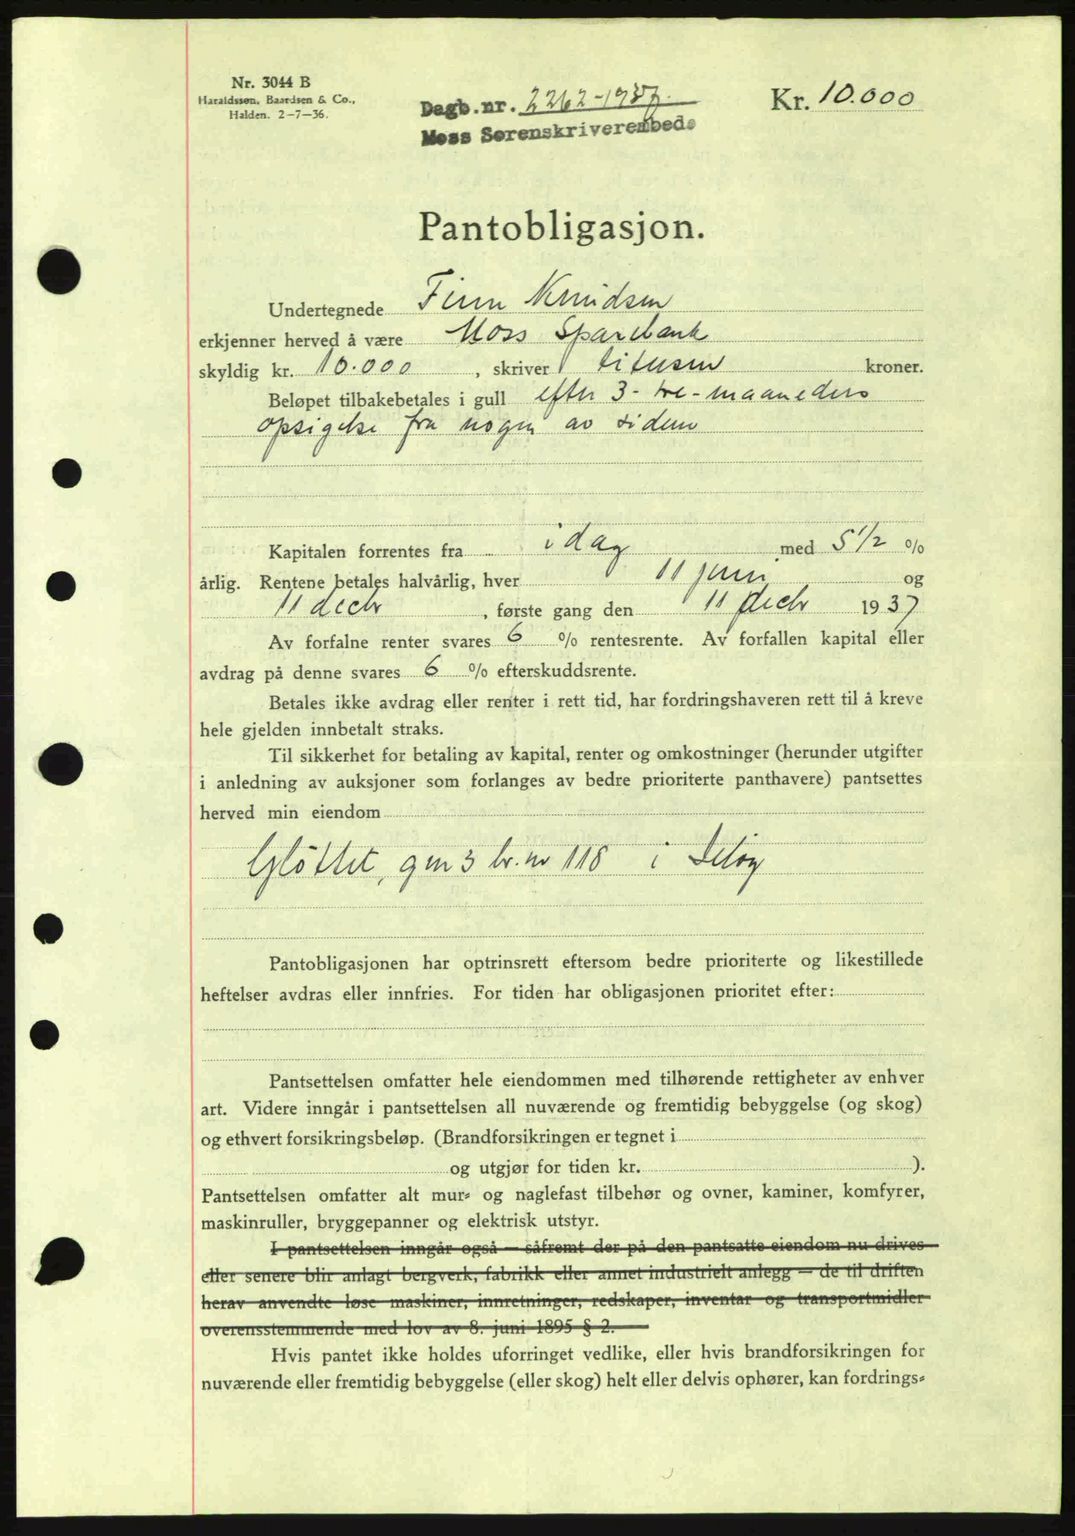 Nr. 3044 B
Haraldssøn, Baardsen & Co.,
Halden. 2-7-36.
Dagb.nr. 2262-1937.
Moss Sorenskriverembede
Kr. 10.000
Pantobligasjon.
Undertegnede Finn Knudsen
erkjenner herved å være Moss Sparebank
skyldig kr. 10.000, skriver titusen kroner.
Beløpet tilbakebetales i gull efter 3- tre- maaneders
opsigelse fra nogen av siderne
Kapitalen forrentes fra idag med 5 1/2 %
årlig. Rentene betales halvårlig, hver 11 juni og
11 decbr, første gang den 11 decbr 1937
Av forfalne renter svares 6 % rentesrente. Av forfallen kapital eller
avdrag på denne svares 6 % efterskuddsrente.
Betales ikke avdrag eller renter i rett tid, har fordringshaveren rett til å kreve
hele gjelden innbetalt straks.
Til sikkerhet for betaling av kapital, renter og omkostninger (herunder utgifter
i anledning av auksjoner som forlanges av bedre prioriterte panthavere) pantsettes
herved min eiendom
Gløttet, gnr 3 br. nr 118 i Jeløy
Pantobligasjonen har optrinsrett eftersom bedre prioriterte og likestillede
heftelser avdras eller innfries. For tiden har obligasjonen prioritet efter:
Pantsettelsen omfatter hele eiendommen med tilhørende rettigheter av enhver
art. Videre inngår i pantsettelsen all nuværende og fremtidig bebyggelse (og skog)
og ethvert forsikringsbeløp. (Brandforsikringen er tegnet i
og utgjør for tiden kr. ).
Pantsettelsen omfatter alt mur- og naglefast tilbehør og ovner, kaminer, komfyrer,
maskinruller, bryggepanner og elektrisk utstyr.
I pantsettelsen inngår også — såfremt der på den pantsatte eiendom nu drives
eller senere blir anlagt bergverk, fabrikk eller annet industrielt anlegg — de til driften
herav anvendte løse maskiner, innretninger, redskaper, inventar og transportmidler
overensstemmende med lov av 8. juni 1895 § 2.
Hvis pantet ikke holdes uforringet vedlike, eller hvis brandforsikringen for
nuværende eller fremtidig bebyggelse (eller skog) helt eller delvis ophører, kan fordrings-